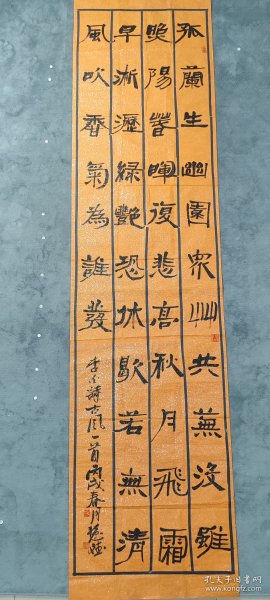 孤蘭生幽園眾艸共蕪沒雖
照陽春暉復悲高秋月飛霜
早淅瀝綠艷恐休歇若無清
風吹香氣為誰發
李白詩古風一首丙戌春月
孔夫子旧书网